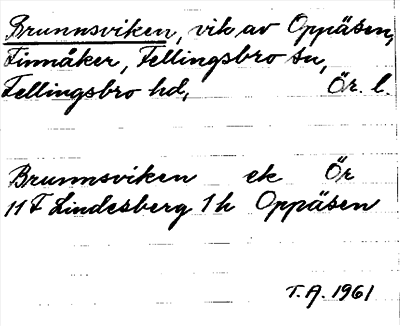 Brunnsviken, vik av Oppåsen,
Finnåker, Fellingsbro sn,
Fellingsbro hd, Ör. l.
Brunnsviken ek Ör
11 F Lindesberg 1 h Oppåsen
T.A. 1961